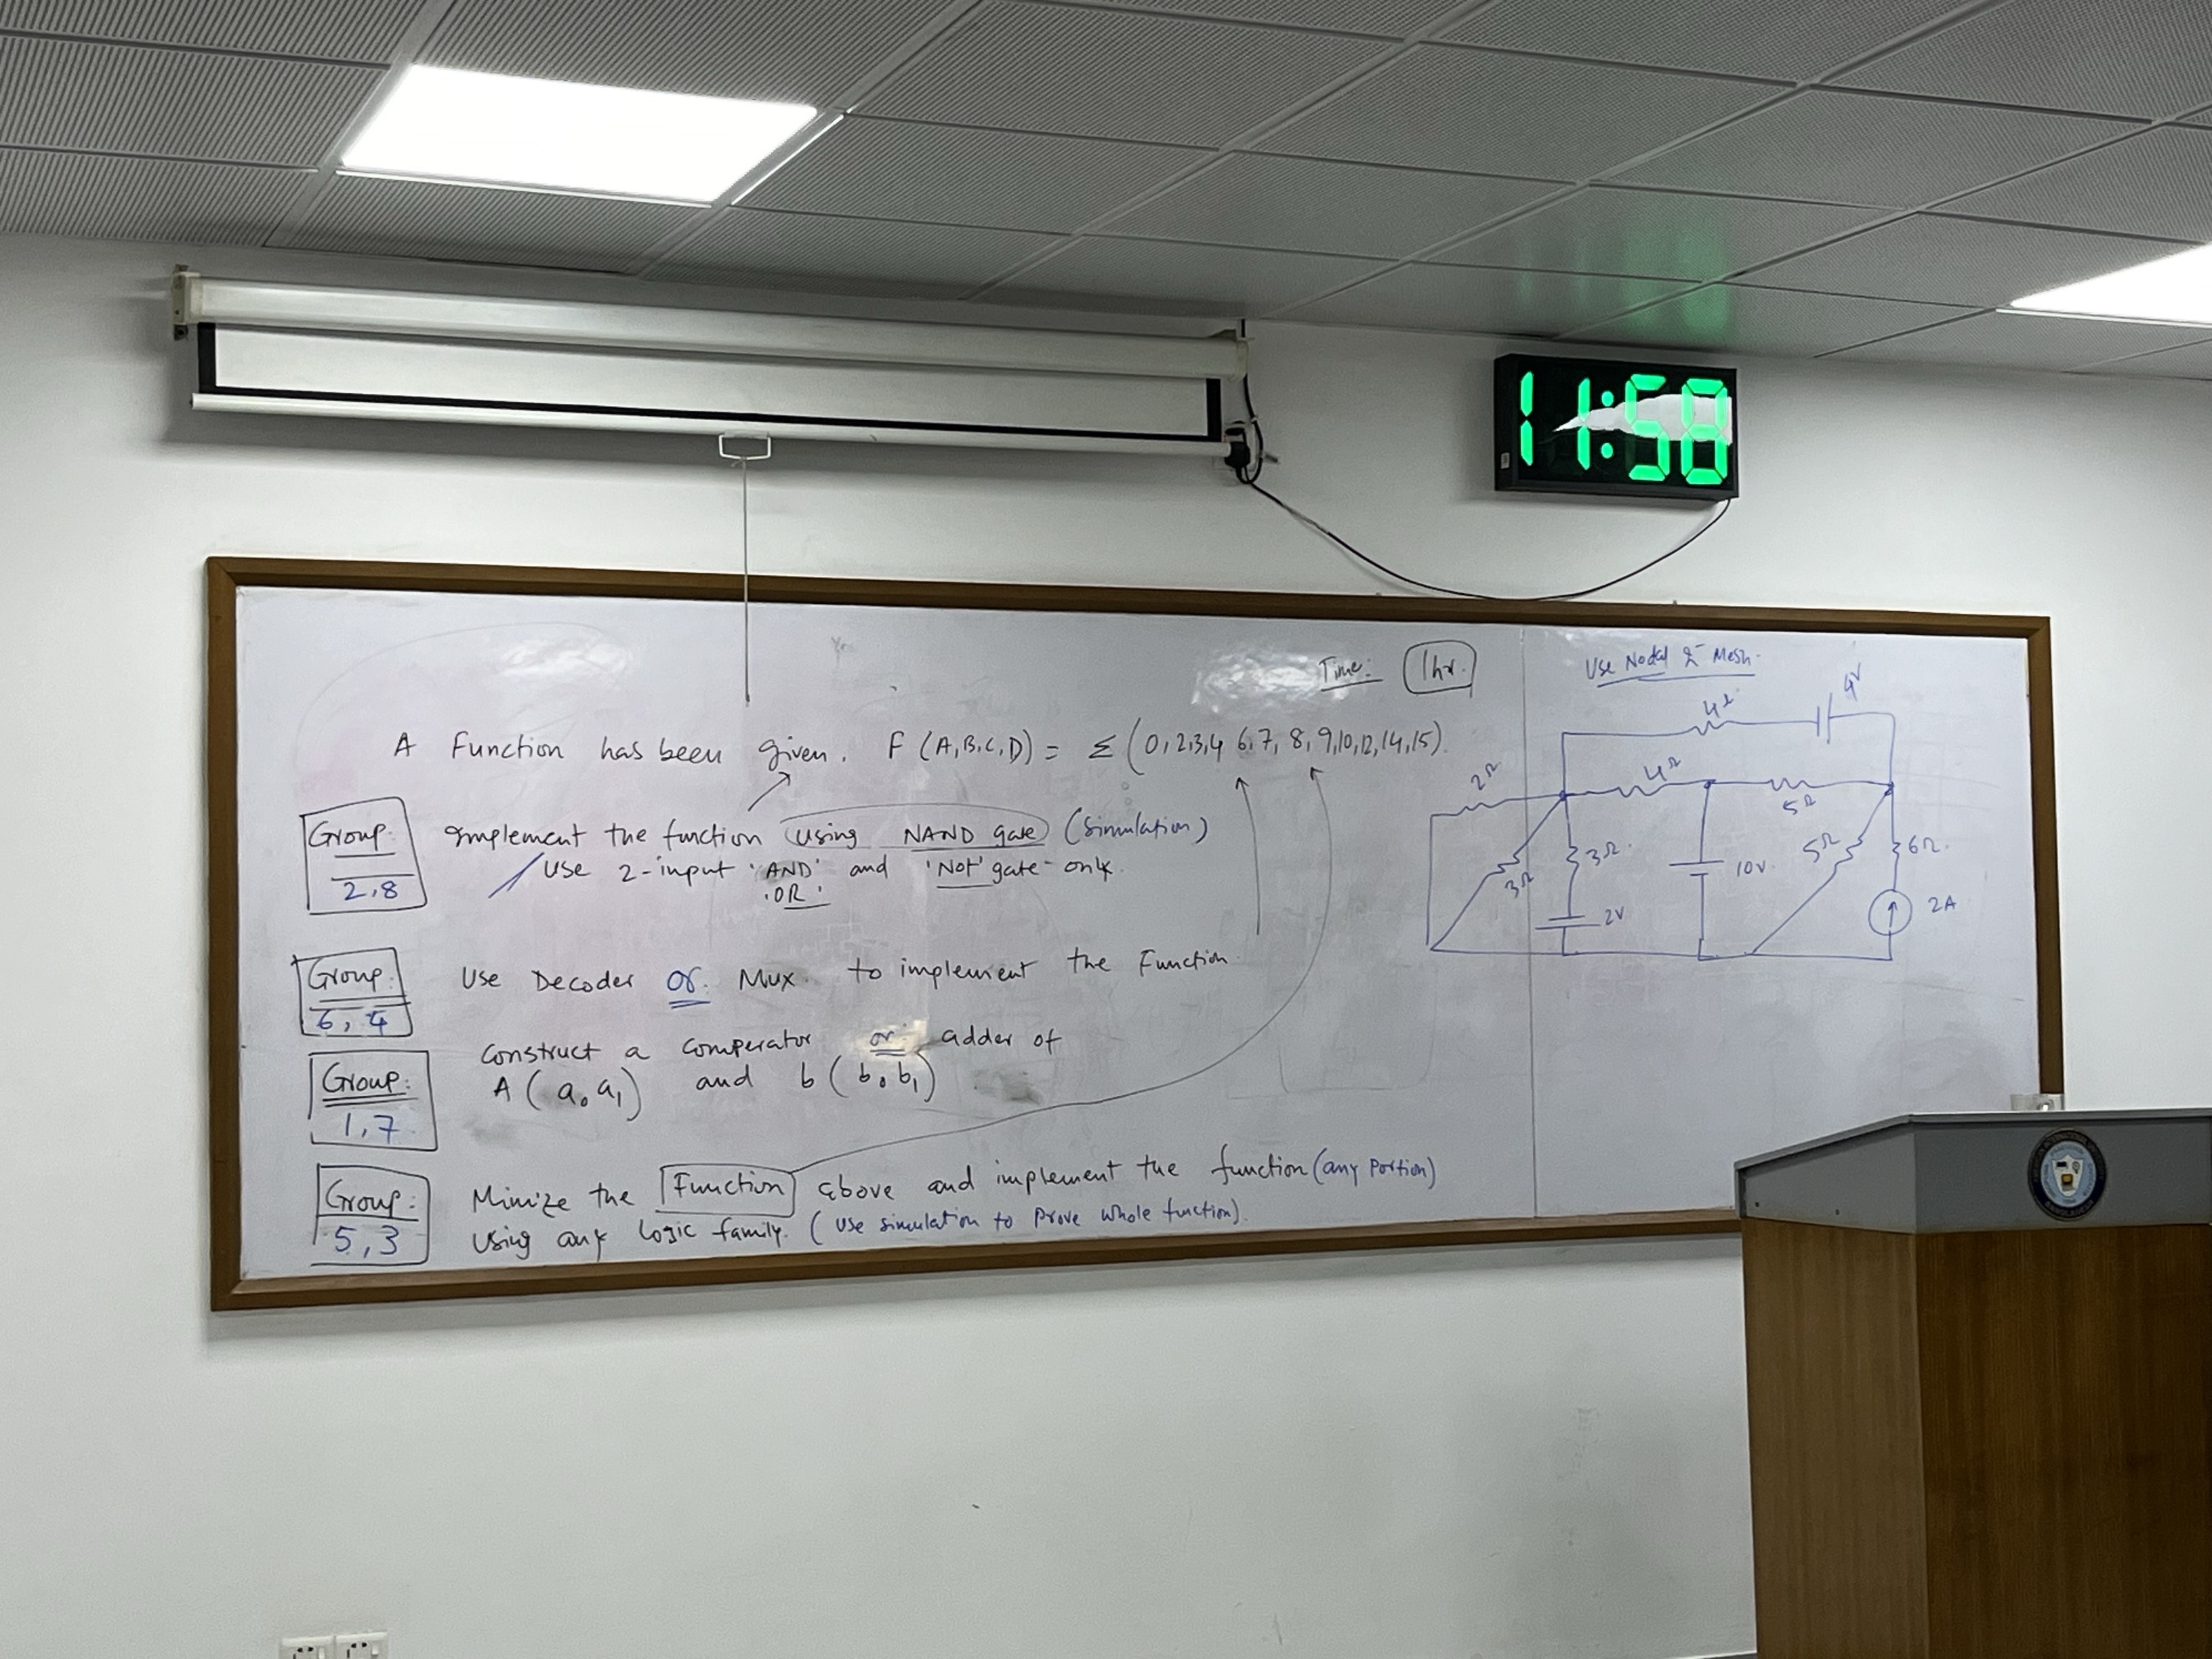 11:58
Time: 1hr.
A Function has been given. F (A,B,C,D) = Σ (0,2,3,4 6,7, 8,9,10,12,14,15).
Group: 2,8
Implement the function using NAND gate (Simulation)
Use 2-input 'AND' and 'Not' gate only.
'OR'
Group: 6, 4
Use Decoder or Mux. to implement the Function.
Group: 1,7
Construct a comperator or adder of
A (a₀ a₁) and b (b₀ b₁)
Group: 5,3
Minize the Function above and implement the function (any portion)
using any logic family. (use simulation to prove whole function).
Use Nodal & Mesh.
4Ω
4V
2Ω
4Ω
5Ω
3Ω
3Ω.
2V
10V.
5Ω
6Ω.
2A